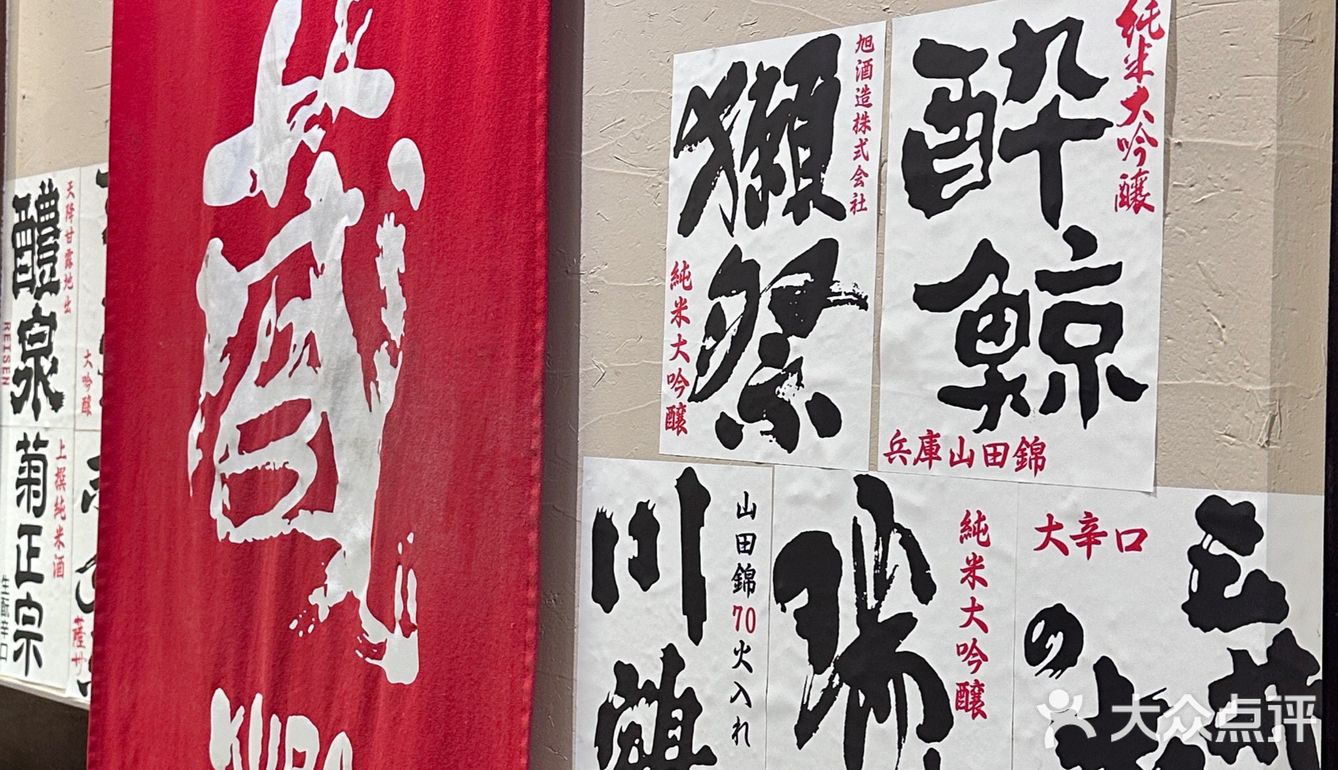 天降甘露地出
醴泉
REISEN
大吟醸
上撰純米酒
菊正宗
生酛辛口
薩サ
KURA
旭酒造株式会社
獺祭
純米大吟醸
純米大吟醸
酔鯨
兵庫山田錦
山田錦70火入れ
川鶴
純米大吟醸
瑞
大辛口
の
大众点评